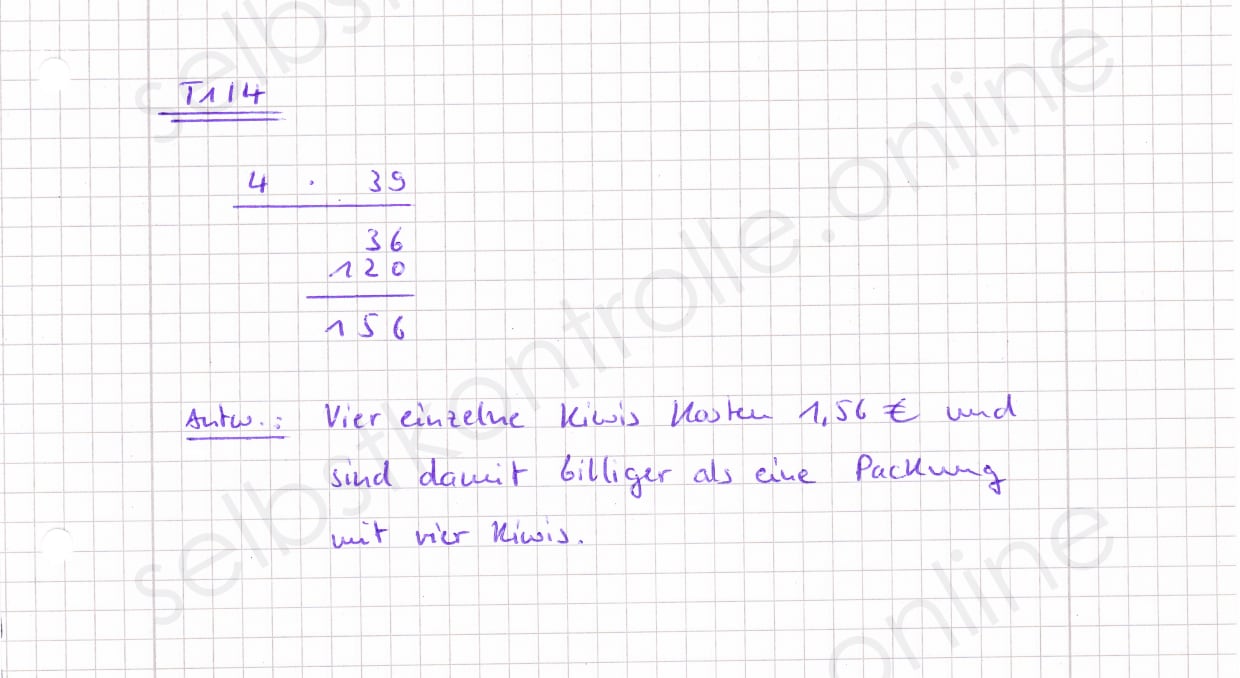 T1/4
4 · 39
36
120
156
Antw.: Vier einzelne Kiwis kosten 1,56 € und
sind damit billiger als eine Packung
mit vier Kiwis.
selbstkontrolle.online